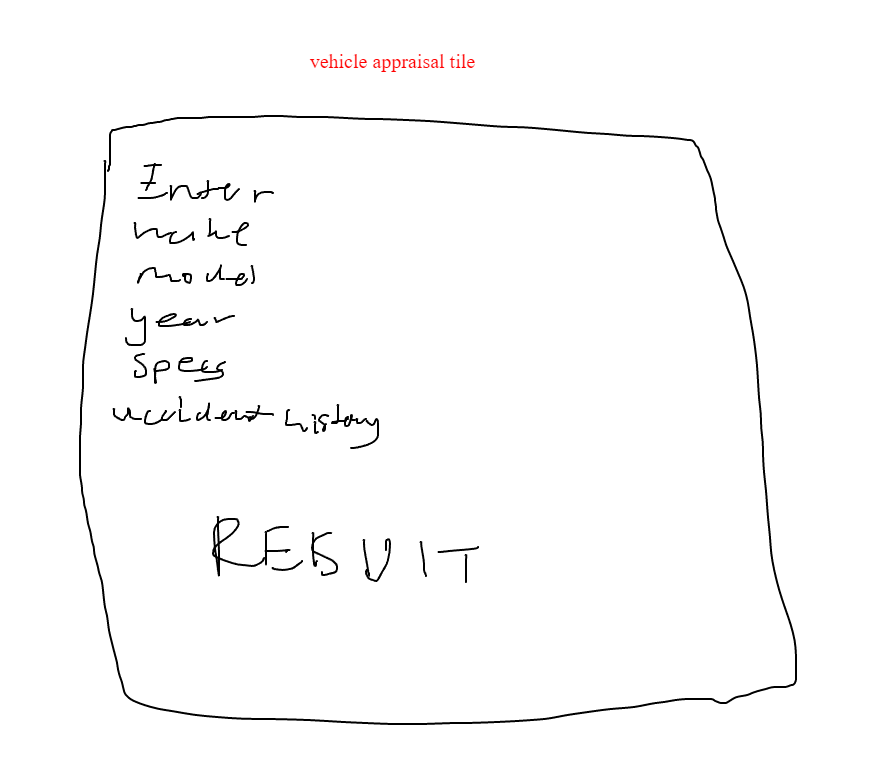 vehicle appraisal tile
Enter
make
model
year
specs
accident history
RESULT